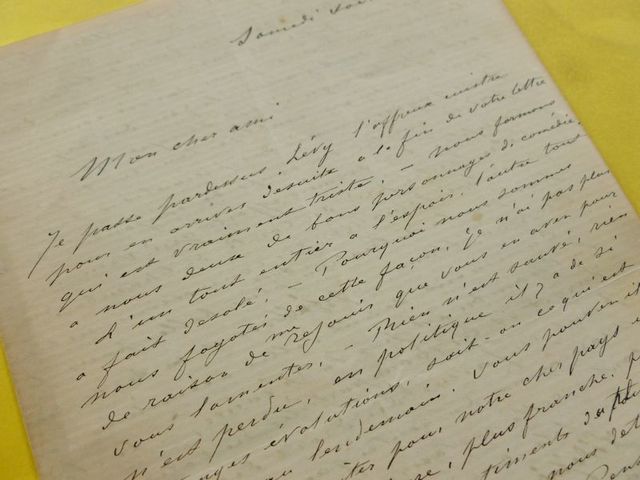 Samedi soir
Mon cher ami
Je passe pardessus Lévy l'affreux cuistre
pour en arriver desuite a la fin de votre lettre
qui est vraiment triste. – Nous formons
a nous deux de bons personnages de comédie.
L'un tout entier a l'espoir. l'autre tout
a fait desolé. – Pourquoi nous sommes
nous fagotés de cette façon, je n'ai pas plus
de raison de me rejouir que vous en avez pour
vous lamenter. – Rien n'est sauvé, rien
n'est perdu, en politique il y a de si
évolutions, sait-on ce qui est
au lendemain. Vous pouvez
pour notre cher pays
plus franche.
nous